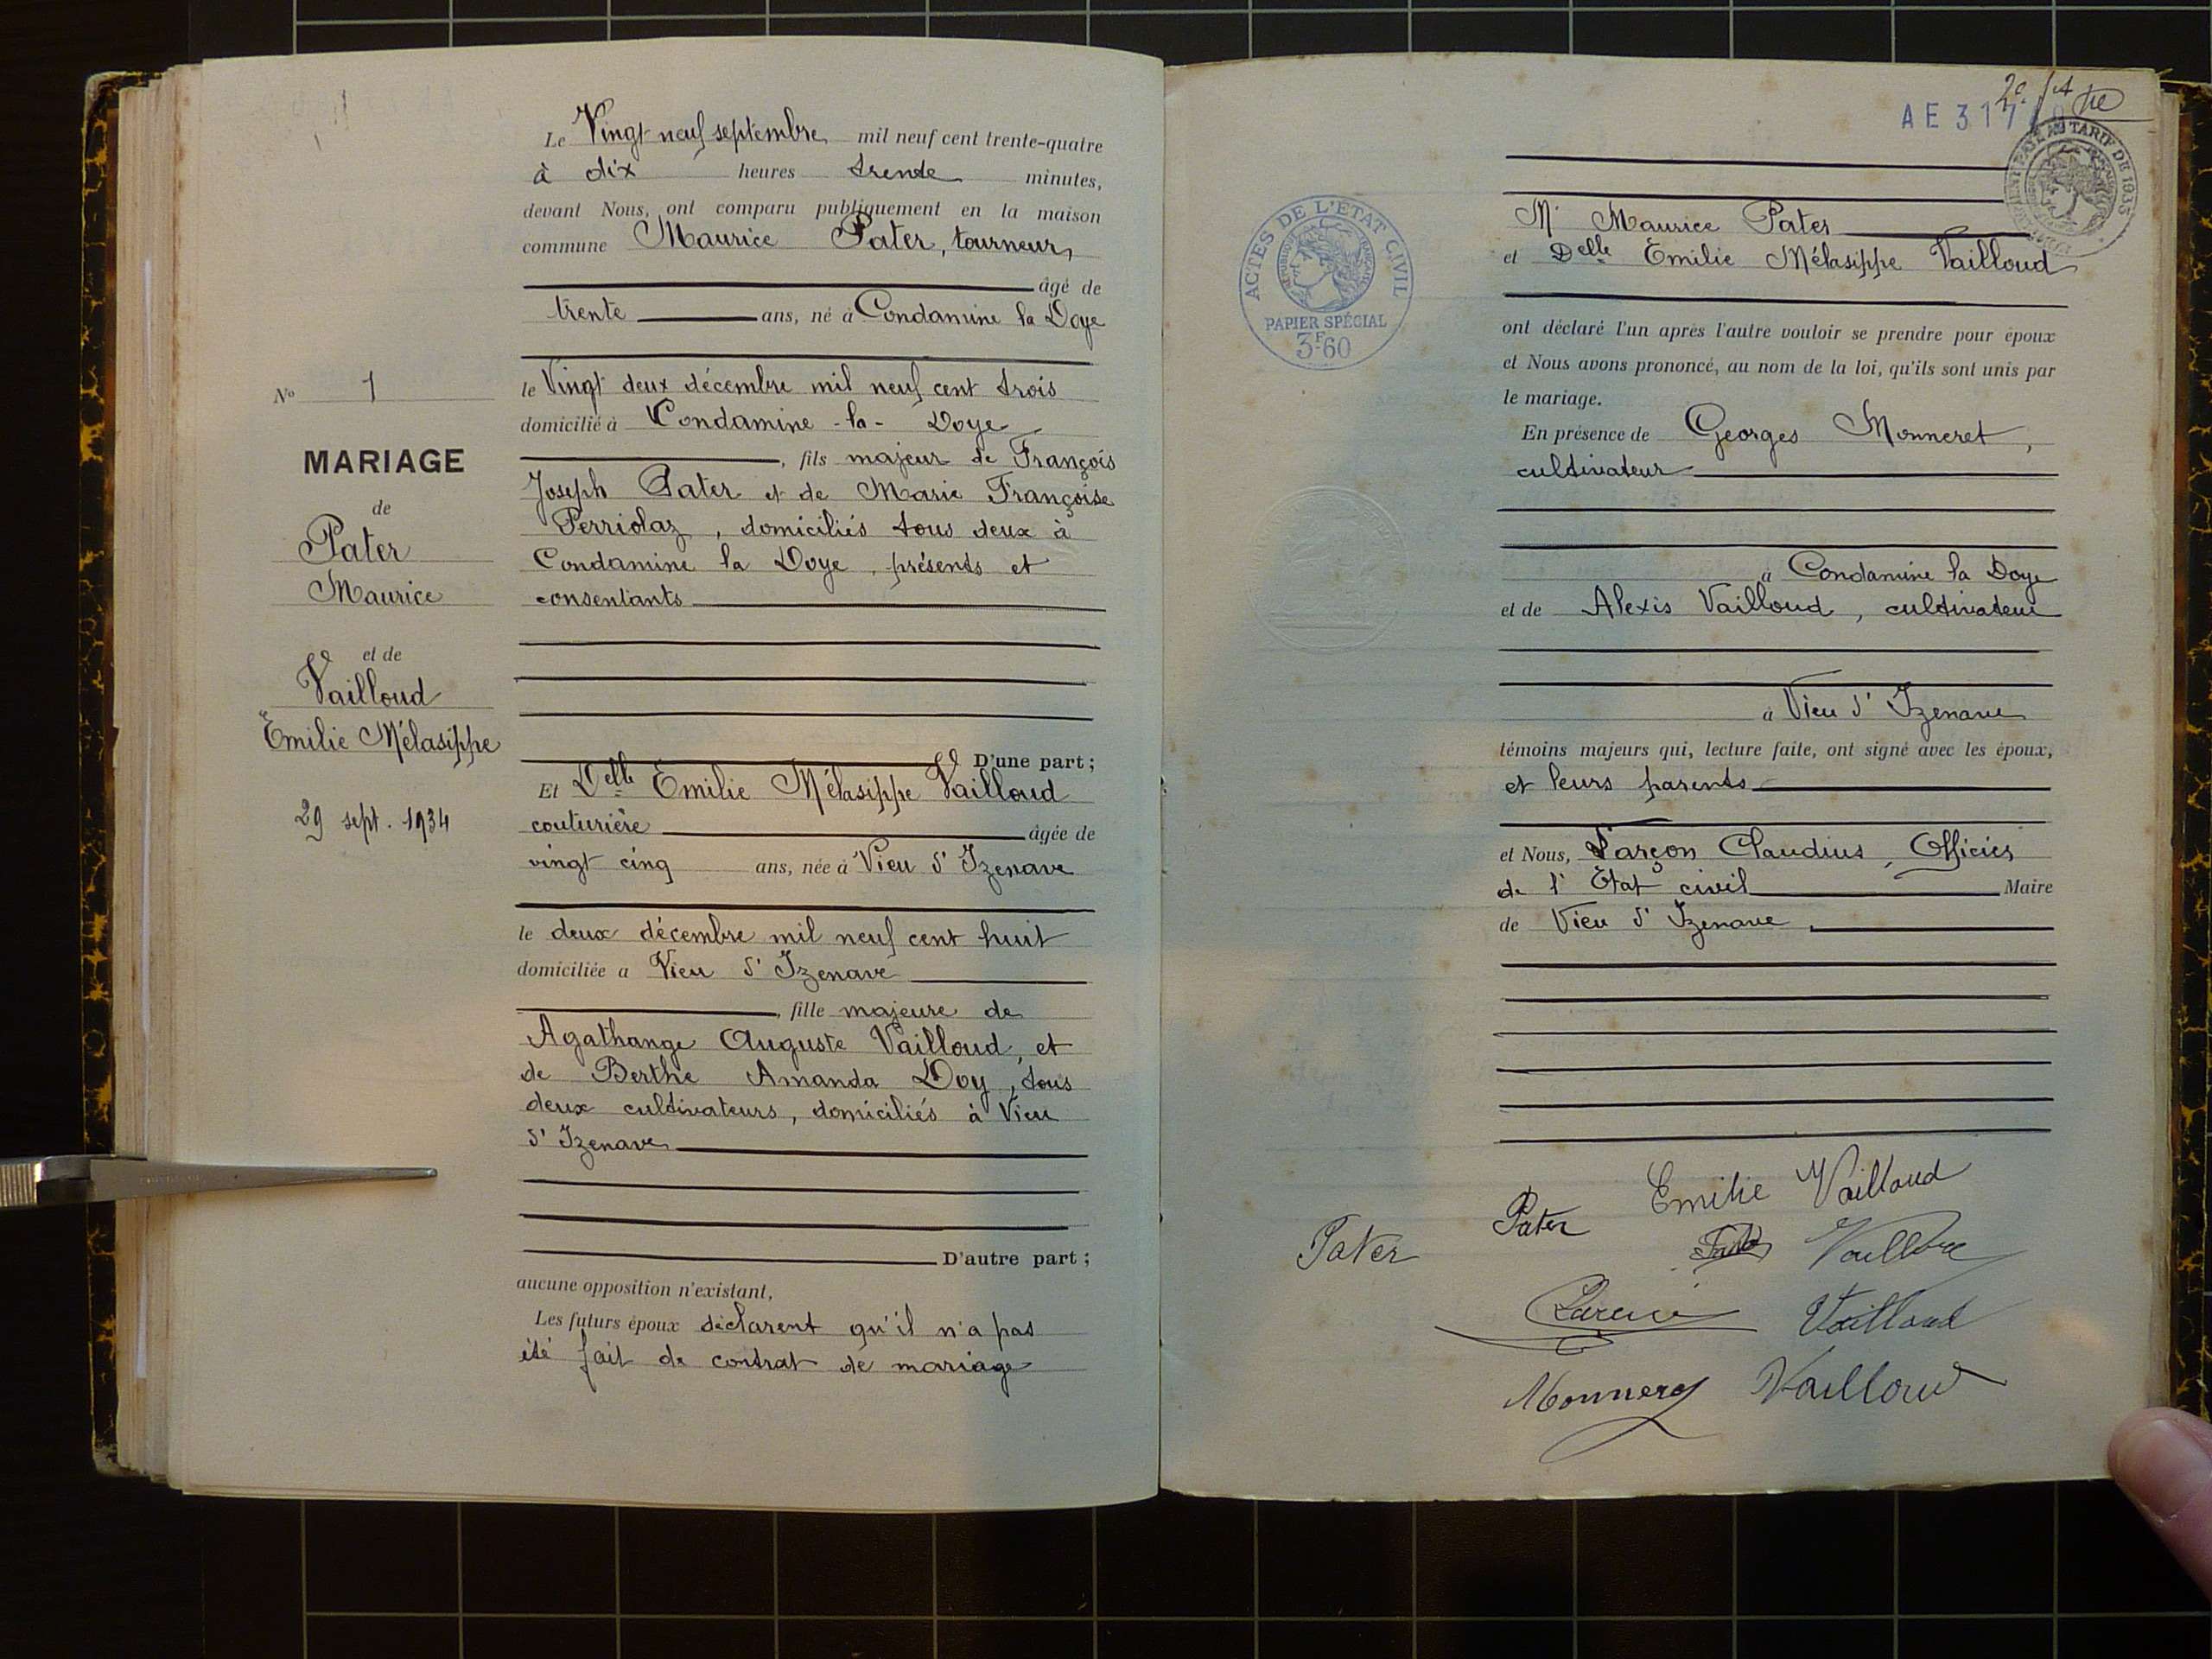 Le Vingt neuf septembre mil neuf cent trente-quatre
à dix heures trente minutes,
devant Nous, ont comparu publiquement en la maison
commune Maurice Pater, tourneur,
âgé de
trente ans, né à Condamine la Doye
le Vingt deux décembre mil neuf cent trois
domicilié à Condamine-la-Doye
, fils majeur de François
Joseph Pater et de Marie Françoise
Perriolaz, domiciliés tous deux à
Condamine la Doye, présents et
consentants
D'une part ;
Et Delle Emilie Mélasippe Vailloud
couturière âgée de
vingt cinq ans, née à Vieu d'Izenave
le deux décembre mil neuf cent huit
domiciliée à Vieu d'Izenave
, fille majeure de
Agathange Auguste Vailloud, et
de Berthe Amanda Doy, tous
deux cultivateurs, domiciliés à Vieu
d'Izenave
D'autre part ;
aucune opposition n'existant,
Les futurs époux déclarent qu'il n'a pas
été fait de contrat de mariage
No 1
MARIAGE
de
Pater
Maurice
et de
Vailloud
Emilie Mélasippe
29 sept. 1934
AE 317
TARIF DE 1935
ACTES DE L'ÉTAT CIVIL
RÉPUBLIQUE FRANÇAISE
PAPIER SPÉCIAL
3F60
Mr Maurice Pater
et Delle Emilie Mélasippe Vailloud
ont déclaré l'un après l'autre vouloir se prendre pour époux
et Nous avons prononcé, au nom de la loi, qu'ils sont unis par
le mariage.
En présence de Georges Monneret,
cultivateur
à Condamine la Doye
et de Alexis Vailloud, cultivateur
à Vieu d'Izenave
témoins majeurs qui, lecture faite, ont signé avec les époux,
et leurs parents
et Nous, Larçon Claudius, Officier
de l'Etat civil Maire
de Vieu d'Izenave.
Emilie Vailloud
Pater
Pater
Vailloud
Vailloud
Monneret
Vailloud